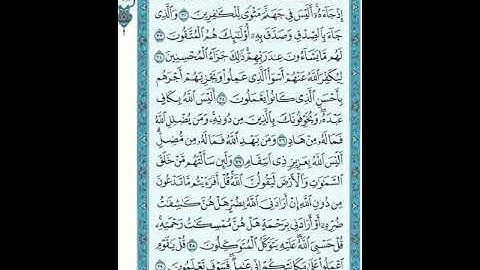 إِذْ جَآءَهُۥٓ أَلَيْسَ فِى جَهَنَّمَ مَثْوًى لِّلْكَٰفِرِينَ ٣٢ وَٱلَّذِى
جَآءَ بِٱلصِّدْقِ وَصَدَّقَ بِهِۦٓ أُو۟لَٰٓئِكَ هُمُ ٱلْمُتَّقُونَ ٣٣
لَهُم مَّا يَشَآءُونَ عِندَ رَبِّهِمْ ذَٰلِكَ جَزَآءُ ٱلْمُحْسِنِينَ ٣٤
لِيُكَفِّرَ ٱللَّهُ عَنْهُمْ أَسْوَأَ ٱلَّذِى عَمِلُوا۟ وَيَجْزِيَهُمْ أَجْرَهُم
بِأَحْسَنِ ٱلَّذِى كَانُوا۟ يَعْمَلُونَ ٣٥ أَلَيْسَ ٱللَّهُ بِكَافٍ
عَبْدَهُۥ وَيُخَوِّفُونَكَ بِٱلَّذِينَ مِن دُونِهِۦ وَمَن يُضْلِلِ ٱللَّهُ
فَمَا لَهُۥ مِنْ هَادٍ ٣٦ وَمَن يَهْدِ ٱللَّهُ فَمَا لَهُۥ مِن مُّضِلٍّ
أَلَيْسَ ٱللَّهُ بِعَزِيزٍ ذِى ٱنتِقَامٍ ٣٧ وَلَئِن سَأَلْتَهُم مَّنْ خَلَقَ
ٱلسَّمَٰوَٰتِ وَٱلْأَرْضَ لَيَقُولُنَّ ٱللَّهُ قُلْ أَفَرَءَيْتُم مَّا تَدْعُونَ
مِن دُونِ ٱللَّهِ إِنْ أَرَادَنِىَ ٱللَّهُ بِضُرٍّ هَلْ هُنَّ كَٰشِفَٰتُ
ضُرِّهِۦٓ أَوْ أَرَادَنِى بِرَحْمَةٍ هَلْ هُنَّ مُمْسِكَٰتُ رَحْمَتِهِۦ
قُلْ حَسْبِىَ ٱللَّهُ عَلَيْهِ يَتَوَكَّلُ ٱلْمُتَوَكِّلُونَ ٣٨ قُلْ يَٰقَوْمِ
ٱعْمَلُوا۟ عَلَىٰ مَكَانَتِكُمْ إِنِّى عَٰمِلٌ فَسَوْفَ تَعْلَمُونَ ٣٩